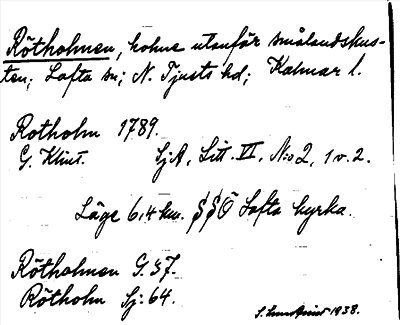 Rötholmen, holme utanför smålandskus-
ten; Lofta sn; N. Tjusts hd; Kalmar l.
Rotholm 1789.
G. Klint. SjA, Litt. VI, N:o 2, 1 v. 2.
Läge 6,4 km. SSÖ Lofta kyrka.
Rötholmen G. 37.
Rötholm Sj. 64.
1938.